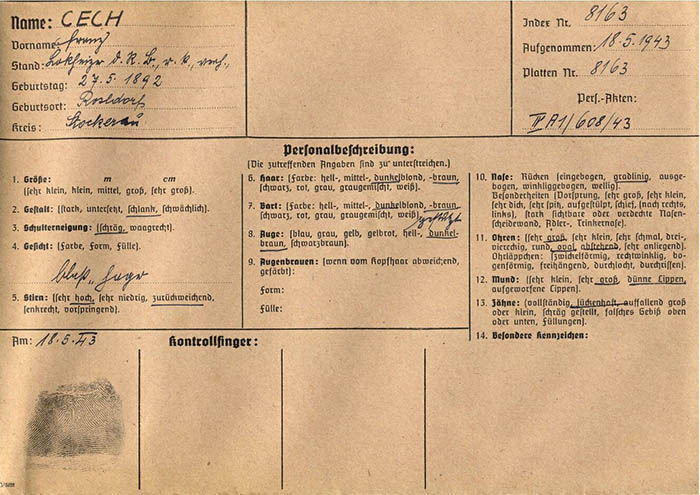 Name: CECH
Vorname: Franz
Stand: Lokheizer d. R. B., r. k., verh.,
Geburtstag: 27.5.1892
Geburtsort: Rosldorf
Kreis: Stockerau
Index Nr. 8163
Aufgenommen: 18.5.1943
Platten Nr. 8163
Pers.-Akten:
II A1/608/43
Personalbeschreibung:
(Die zutreffenden Angaben sind zu unterstreichen.)
1. Größe: m cm
(sehr klein, klein, mittel, groß, sehr groß).
2. Gestalt: (stark, untersetzt, schlank, schwächlich).
3. Schulterneigung: (schräg, waagrecht).
4. Gesicht: (Farbe, Form, Fülle).
blaß, hager
5. Stirn: (sehr hoch, sehr niedrig, zurückweichend,
senkrecht, vorspringend).
6. Haar: (Farbe: hell-, mittel-, dunkelblond, -braun,
schwarz, rot, grau, graugemischt, weiß).
7. Bart: (Farbe: hell-, mittel-, dunkelblond, -braun,
schwarz, rot, grau, graugemischt, weiß) gestutzt
8. Auge: (blau, grau, gelb, gelbrot, hell-, dunkel-
braun, schwarzbraun).
9. Augenbrauen: (wenn vom Kopfhaar abweichend,
gefärbt):
Form:
Fülle:
10. Nase: Rücken (eingebogen, gradlinig, ausge-
bogen, winkliggebogen, wellig).
Besonderheiten (Vorsprung, sehr groß, sehr klein,
sehr dick, sehr spitz, aufgestülpt, schief, (nach rechts,
links), stark sichtbare oder verdeckte Nasen-
scheidewand, Adler-, Trinkernase).
11. Ohren: (sehr groß, sehr klein, sehr schmal, drei-
vierreckig, rund, oval abstehend, sehr anliegend).
Ohrläppchen: (zwickelförmig, rechtwinklig, bo-
genförmig, freihängend, durchlocht, durchrissen).
12. Mund: (sehr klein, sehr groß, dünne Lippen,
aufgeworfene Lippen).
13. Zähne: (vollständig, lückenhaft, auffallend groß
oder klein, schräg gestellt, falsches Gebiß oben
oder unten, Füllungen).
14. Besondere Kennzeichen:
Am: 18.5.43
Kontrollfinger: